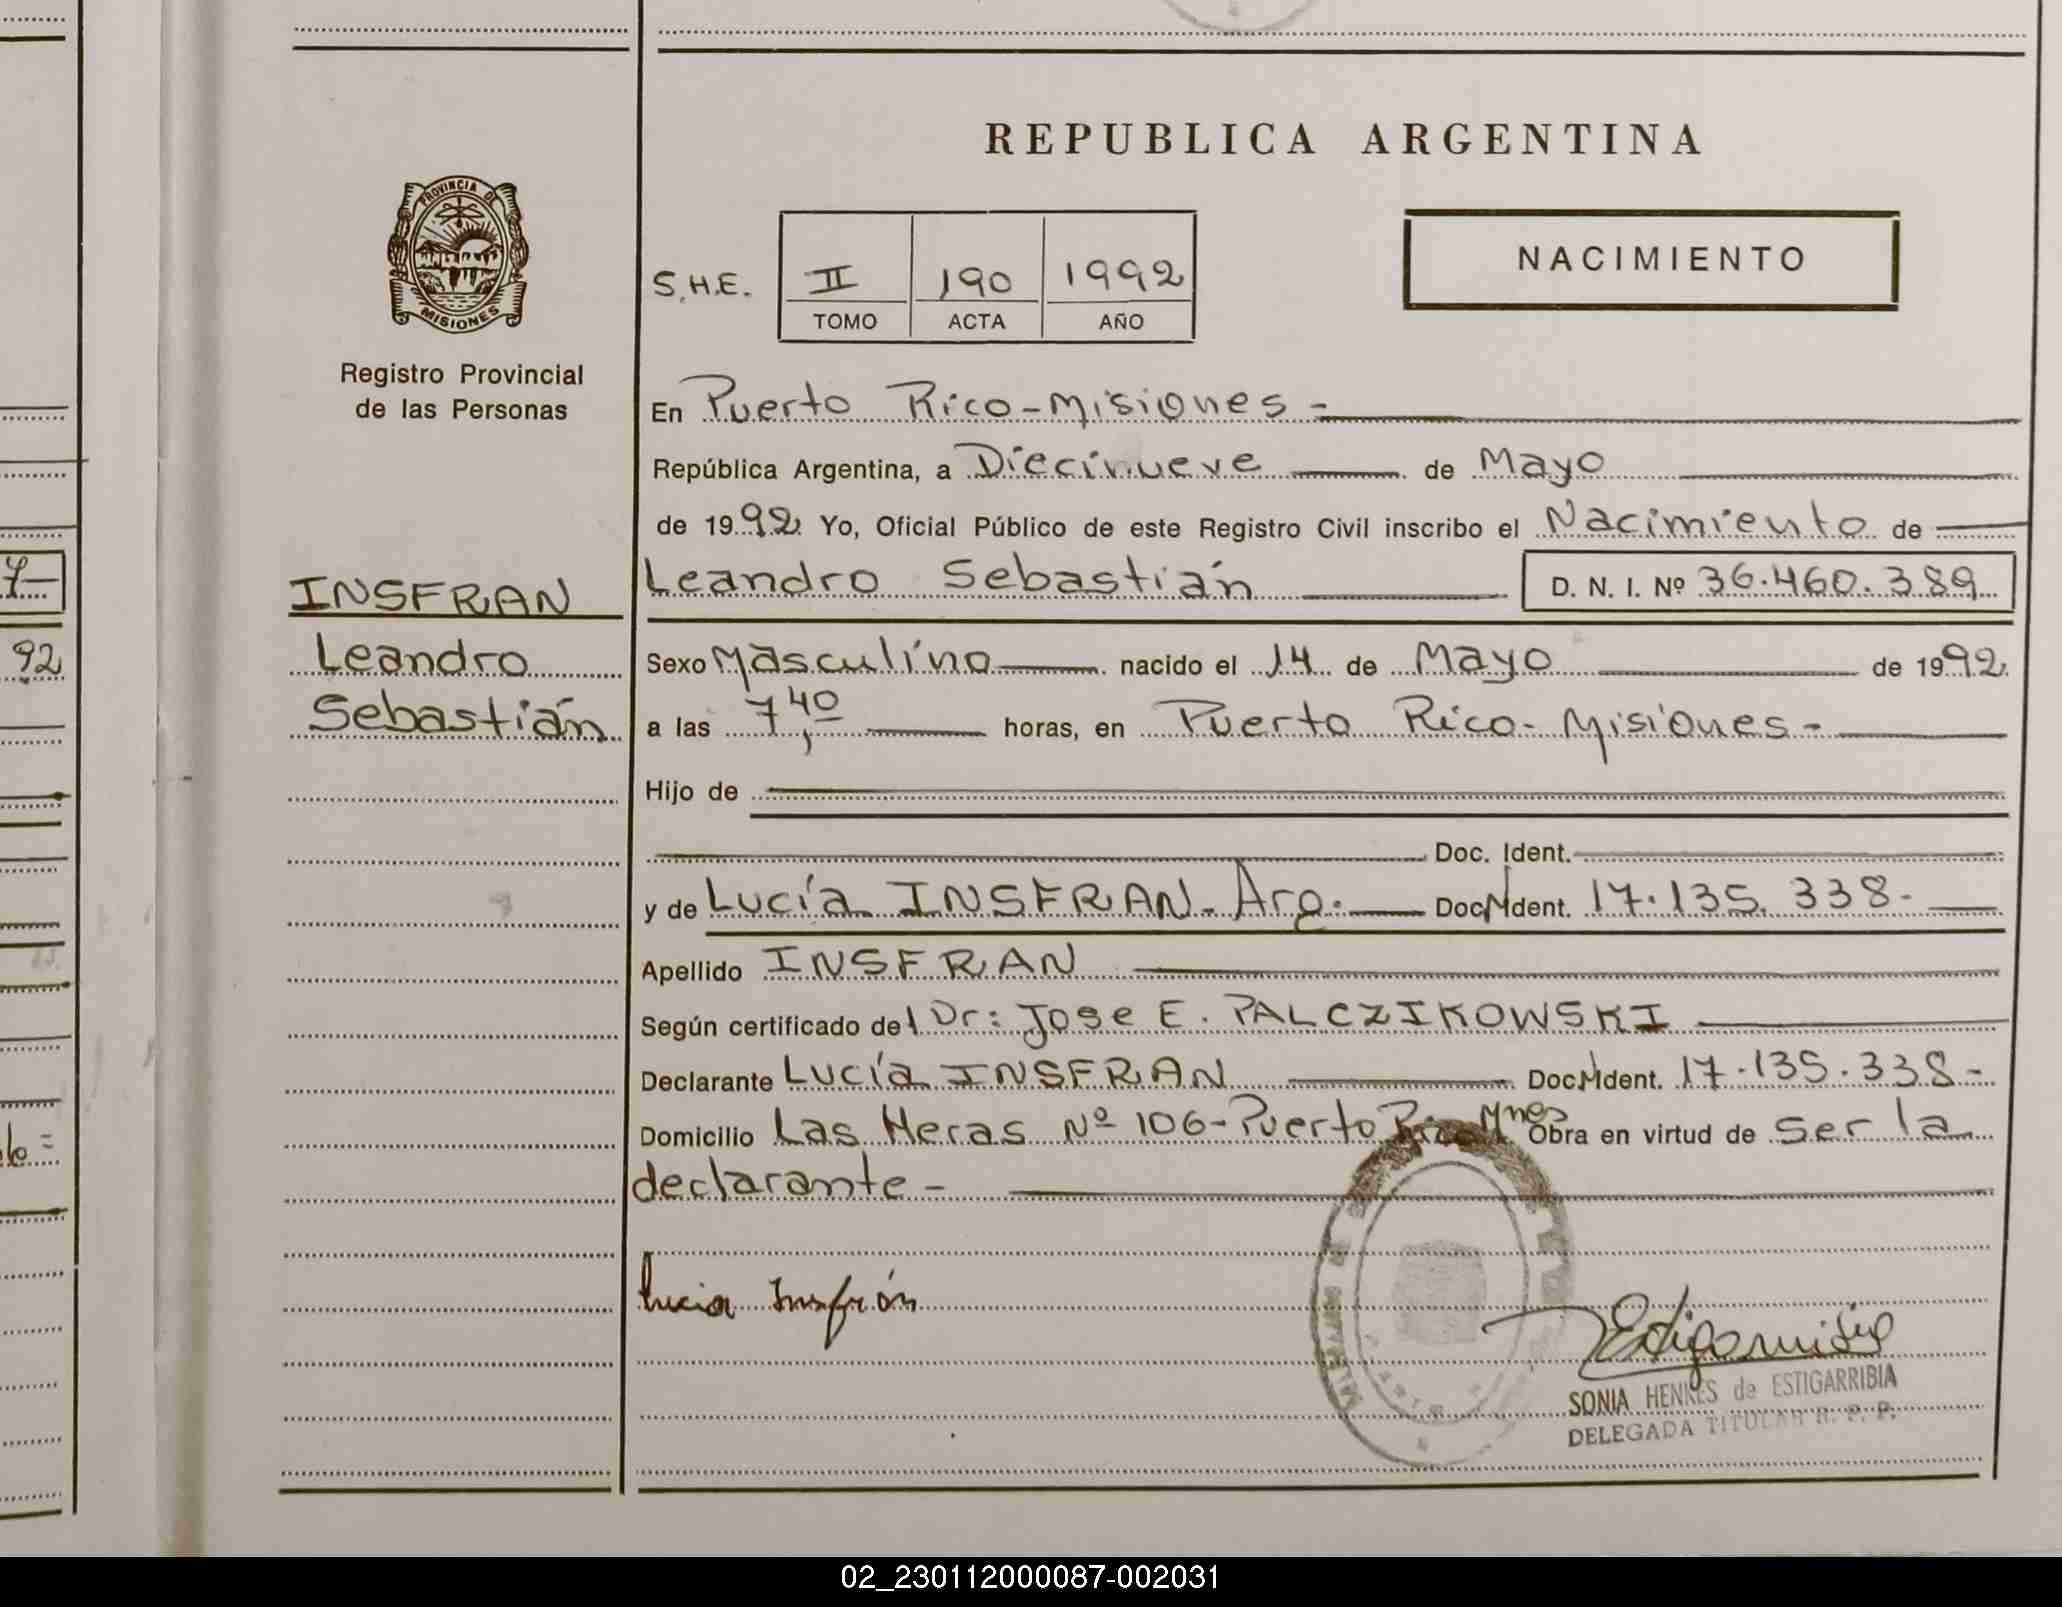 REPUBLICA ARGENTINA
PROVINCIA DE
MISIONES
Registro Provincial
de las Personas
NACIMIENTO
S.H.E. II 190 1992
TOMO ACTA AÑO
En Puerto Rico - Misiones -
República Argentina, a Diecinueve de Mayo
de 1992 Yo, Oficial Público de este Registro Civil inscribo el Nacimiento de
INSFRAN
Leandro
Sebastián
Leandro Sebastián D. N. I. Nº 36.460.389
Sexo Masculino nacido el 14 de Mayo de 1992
a las 7,40 horas, en Puerto Rico - Misiones -
Hijo de
Doc. Ident.
y de Lucía INSFRAN - Arg. Doc. Ident. 17.135.338 -
Apellido INSFRAN
Según certificado del Dr: Jose E. PALCZIKOWSKI
Declarante Lucía INSFRAN Doc. Ident. 17.135.338 -
Domicilio Las Heras Nº 106 - Puerto Rico Mnes Obra en virtud de Ser la
declarante -
Lucia Insfrán
SONIA HENNES de ESTIGARRIBIA
DELEGADA TITULAR R. P. P.
92
02_230112000087-002031